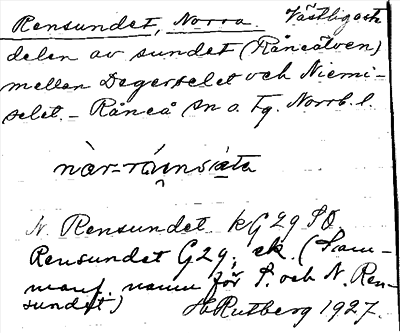 Rensundet, Norra. Västligaste
delen av sundet (Råneälven)
mellan Degerselet och Niemi-
selet. - Råneå sn o. tg. Norrb. l.
N. Rensundet kG29 SO
Rensundet G29, ek. (Sam-
manf. namn för S. och N. Ren-
sundet) H Rutberg 1927.